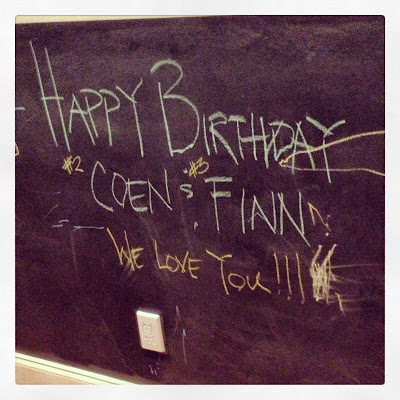 HAPPY BIRTHDAY
#2 #3
COEN & FINN
WE LOVE YOU!!!